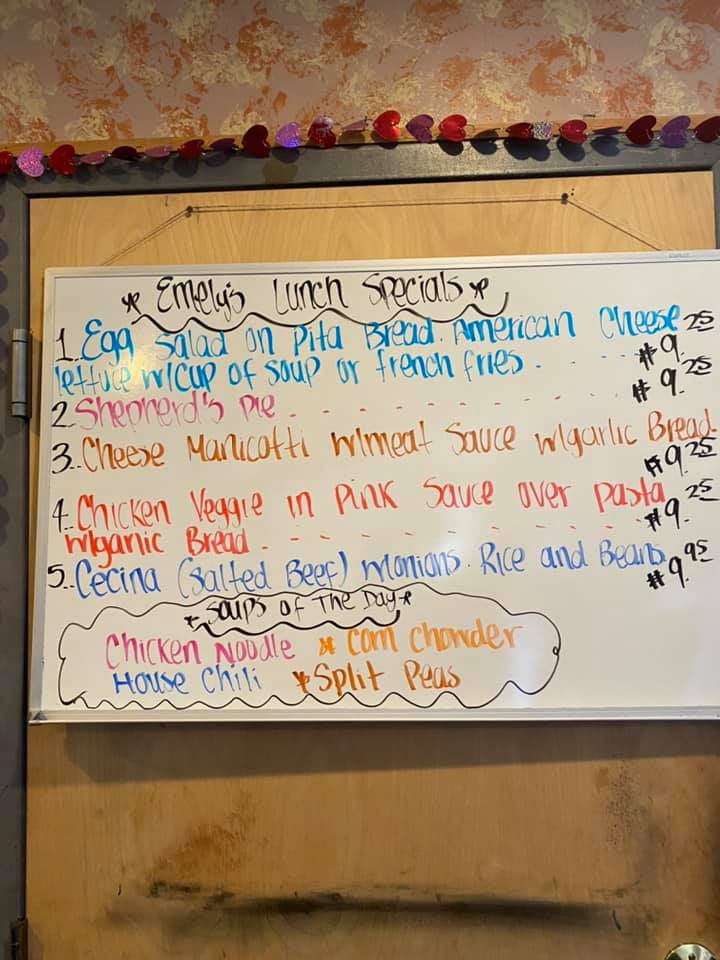 * Emely's Lunch Specials *
1. Egg Salad on Pita Bread. American Cheese
lettuce w/cup of soup or french fries . - - - - $9.25
2. Shepherd's Pie . - - - - - - - - $9.25
3. Cheese Manicotti w/meat Sauce w/garlic Bread. $9.25
4. Chicken Veggie in Pink Sauce over Pasta
w/garlic Bread . - - - - - - - - $9.25
5. Cecina (Salted Beef) w/onions. Rice and Beans. $9.95
* Soups of The Day *
Chicken Noodle * Corn Chowder
House Chili * Split Peas